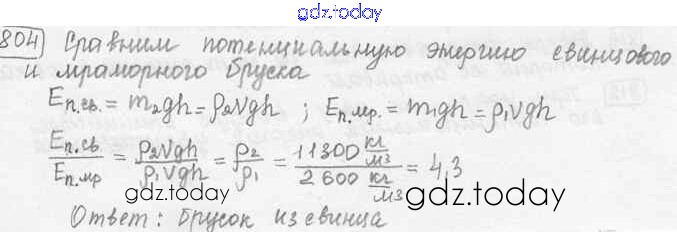 gdz.today
804 Сравним потенциальную энергию свинцового
и мраморного бруска
Eп.св. = m₂gh = ρ₂Vgh ; Eп.мр. = m₁gh = ρ₁Vgh
Eп.св / Eп.мр = ρ₂Vgh / ρ₁Vgh = ρ₂ / ρ₁ = 11300 кг/м³ / 2600 кг/м³ = 4,3
gdz.today gdz.today
Ответ: Брусок из свинца